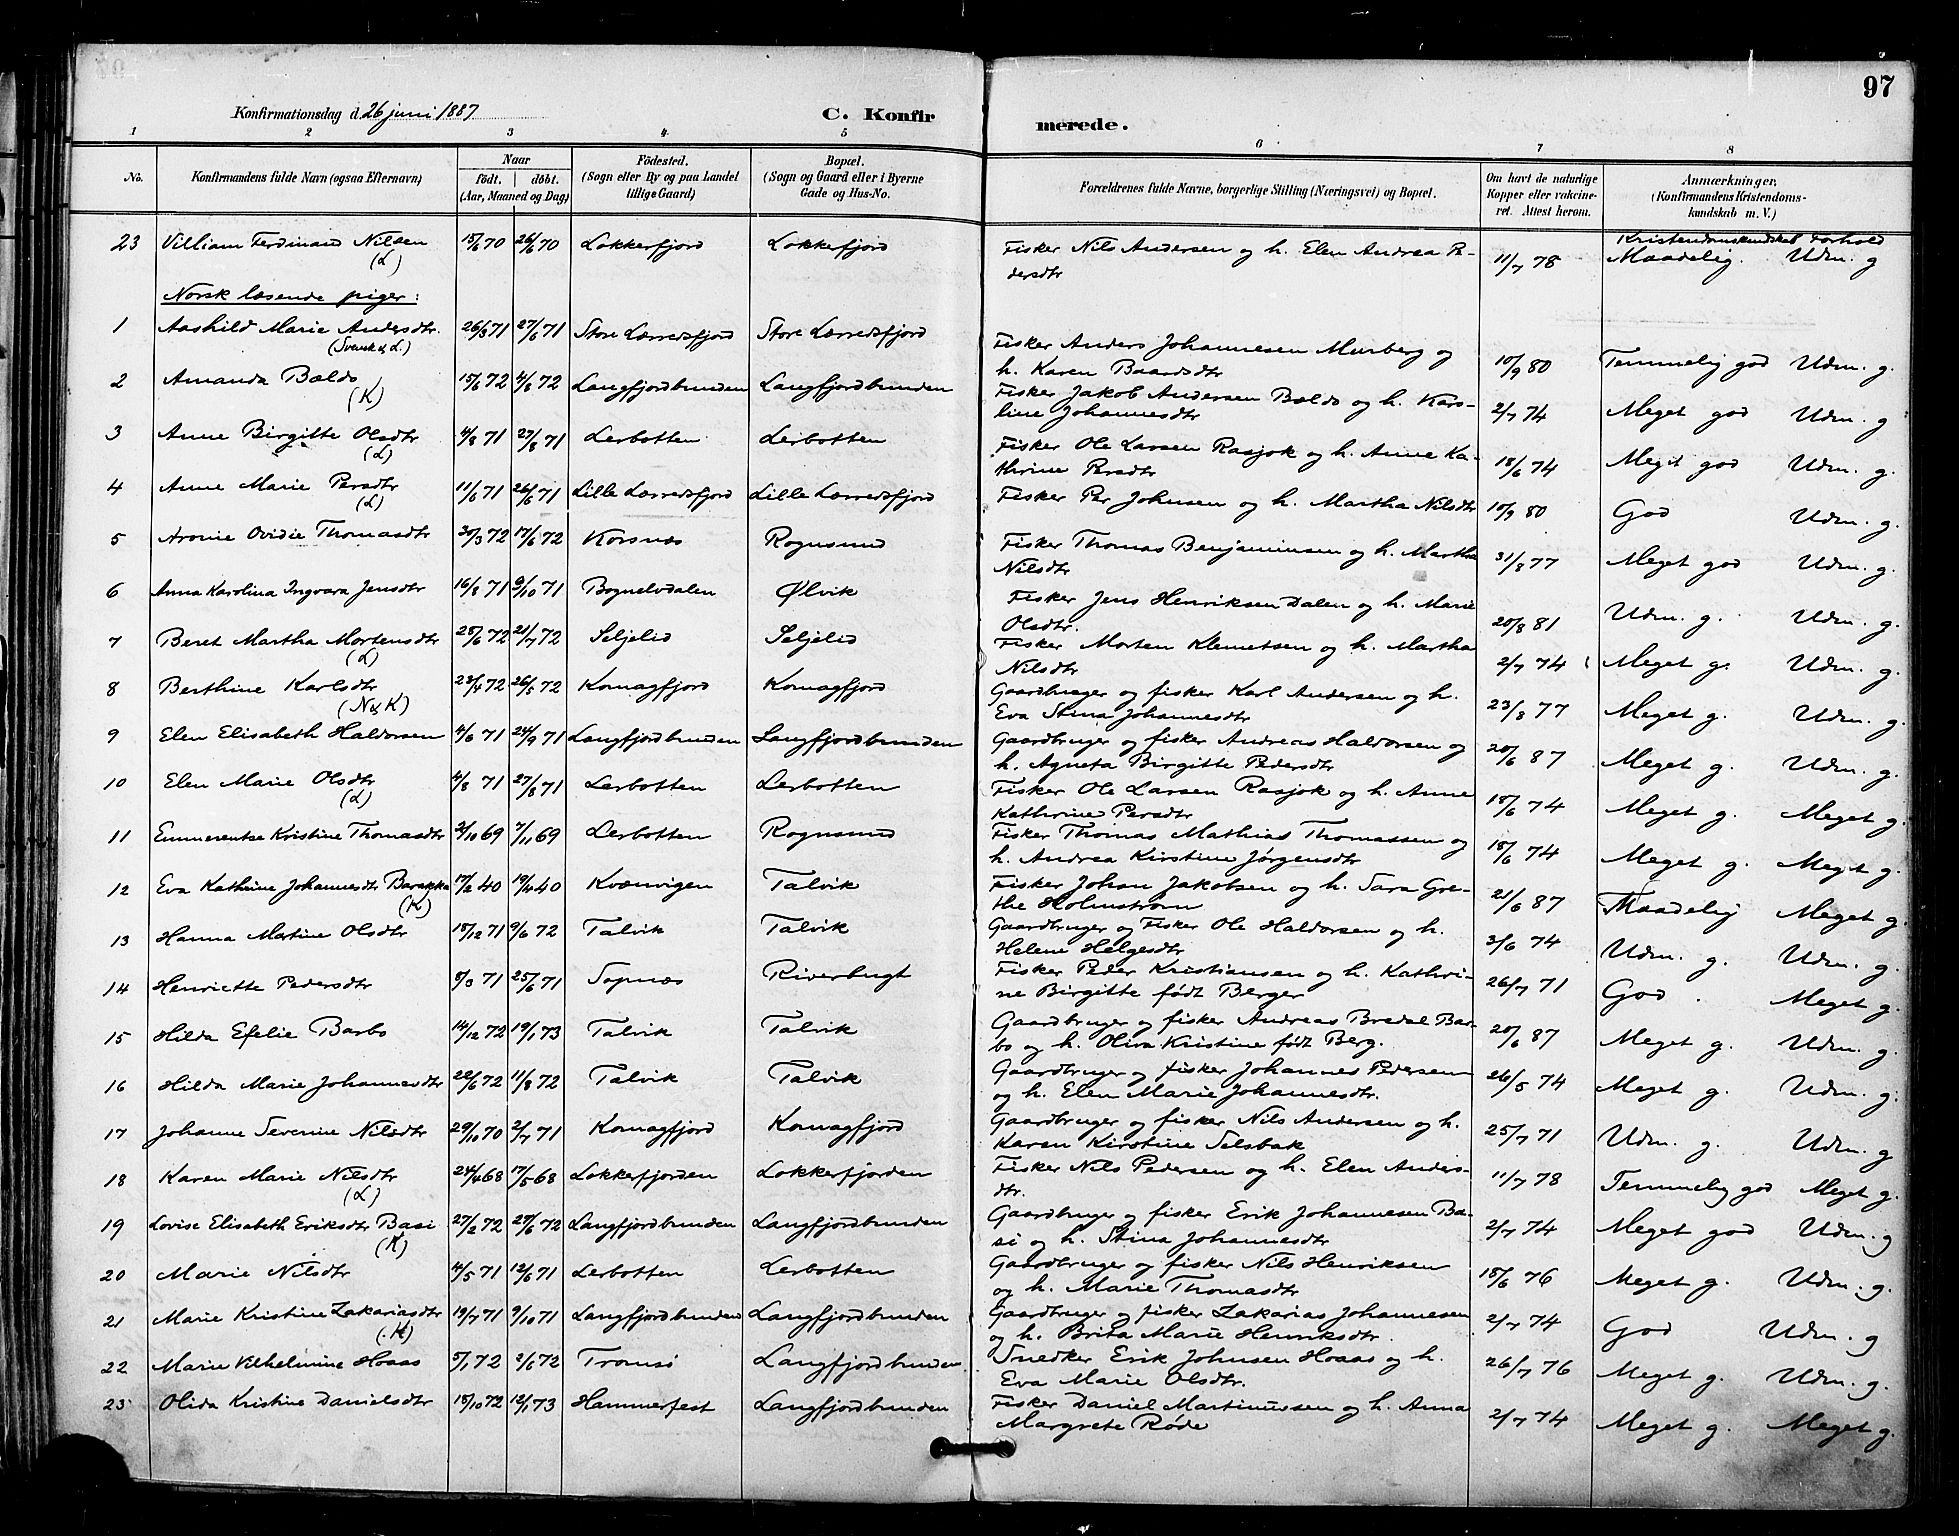 97
Konfirmationsdag d. 26 juni 1887
C. Konfirmerede.
1 2 3 4 5 6 7 8
No. | Konfirmandens fulde Navn (ogsaa Efternavn) | Naar födt. döbt. (Aar, Maaned og Dag) | Födested. (Sogn eller By og paa Landet tillige Gaard) | Bopæl. (Sogn og Gaard eller i Byerne Gade og Hus-No. | Forældrenes fulde Navne, borgerlige Stilling (Næringsvei) og Bopæl. | Om havt de naturlige Kopper eller vakcineret. Attest herom. | Anmærkninger, (Konfirmandens Kristendomskundskab m. V.)
Kristendomskundskab Forhold
23 Villiam Ferdinand Nilsen (L) 15/6 70 26/6 70 Lokkerfjord Lokkerfjord Fisker Nils Andersen og h. Elen Andrea Pedersdtr 11/7 78 Maadelig. Udm. g
Norsk læsende piger:
1 Aashild Marie Andersdtr. (Svensk & L.) 26/3 71 27/6 71 Store Lerredsfjord Store Lerredsfjord Fisker Anders Johannesen Murberg og h. Karen Baardsdtr 10/9 80 Temmelig god Udm. g.
2 Amanda Bælds (K) 15/6 72 4/8 72 Langfjordbunden Langfjordbunden Fisker Jakob Andersen Bælds og h. Karoline Johannesdtr 2/7 74 Meget god Udm. g
3 Anne Birgitte Olsdtr (L) 4/8 71 27/8 71 Lerbotten Lerbotten Fisker Ole Larsen Rasjok og h. Anne Kathrine Persdtr 18/6 74 Meget god Udm. g.
4 Anne Marie Persdtr (L) 11/6 71 26/6 71 Lille Lerredsfjord Lille Lerredsfjord Fisker Per Johnsen og h. Martha Nilsdtr 10/9 80 God Udm. g.
5 Aronie Ovidie Thomasdtr 30/3 72 17/6 72 Korsnæs Rognsund Fisker Thomas Benjaminsen og h. Martha Nilsdtr 31/8 77 Meget god Udm. g.
6 Anna Karolina Ingvara Jensdtr 16/8 71 9/10 71 Bognelvdalen Ølvik Fisker Jens Henriksen Dalen og h. Marie Olsdtr. 20/8 81 Udm. g. Udm. g.
7 Beret Martha Mortensdtr (L) 25/6 72 21/7 72 Seljelid Seljelid Fisker Morten Klemetsen og h. Martha Nilsdtr 2/7 74 Meget g. Udm. g.
8 Berthine Karlsdtr (N & K) 23/4 72 26/5 72 Komagfjord Komagfjord Gaardbruger og fisker Karl Andersen og h. Eva Stina Johannesdtr 23/8 77 Meget g. Udm. g.
9 Elen Elisabeth Haldorsen 4/6 71 24/9 71 Langfjordbunden Langfjordbunden Gaardbruger og fisker Andreas Haldorsen og h. Agneta Birgitte Pedersdtr 20/6 87 Meget g. Udm. g.
10 Elen Marie Olsdtr (L) 4/8 71 27/8 71 Lerbotten Lerbotten Fisker Ole Larsen Rasjok og h. Anne Kathrine Persdtr 18/6 74 Meget g. Meget g.
11 Emmerentse Kristine Thomasdtr 3/10 69 7/11 69 Lerbotten Rognsund Fisker Thomas Mathias Thomassen og h. Andrea Kirstine Jørgensdtr 18/6 74 Meget g. Meget g.
12 Eva Kathrine Johannesdtr Barakka (K) 17/2 40 19/4 40 Kvænvigen Talvik Fisker Johan Jakobsen og h. Sara Grethe Holmstrøm 21/6 87 Maadelig Meget g.
13 Hanna Martine Olsdtr 18/12 71 9/6 72 Talvik Talvik Gaardbruger og Fisker Ole Haldorsen og h. Helene Helgesdtr 3/6 74 Udm. g. Udm. g.
14 Henriette Pedersdtr 8/3 71 25/6 71 Sopnæs Riverbugt Fisker Peder Kristiansen og h. Kathrine Birgitte født Berger 26/7 71 God. Meget g.
15 Hilda Efelie Barbo 14/12 72 19/1 73 Talvik Talvik Gaardbruger og fisker Andreas Bredal Barbo og h. Oliva Kristine født Berg. 20/6 87 Meget g. Udm. g.
16 Hilda Marie Johannesdtr 22/6 72 11/8 72 Talvik Talvik Gaardbruger og fisker Johannes Pedersen og h. Elen Marie Johannesdtr. 26/5 74 Meget g. Udm. g.
17 Johanne Severine Nilsdtr 29/10 70 2/7 71 Komagfjord Komagfjord Gaardbruger og fisker Nils Andersen og h. Karen Kirstine Selsbak 25/7 71 Udm. g. Udm. g
18 Karen Marie Nilsdtr (L) 24/4 68 17/5 68 Lokkerfjorden Lokkerfjorden Fisker Nils Pedersen og h. Elen Andersdtr. 11/7 78 Temmelig god Meget g.
19 Lovise Elisabeth Eriksdtr Basi (K) 27/2 72 27/6 72 Langfjordbunden Langfjordbunden Gaardbruger og fisker Erik Johannesen Basi og h. Stina Johannesdtr 2/7 74 Meget god Udm. g
20 Marie Nilsdtr 4/5 71 12/6 71 Lerbotten Lerbotten Gaardbruger og fisker Nils Henriksen og h. Marie Thomasdtr 18/6 76 Meget g. Udm. g.
21 Marie Kristine Zakariasdtr (K) 19/7 71 9/10 71 Langfjordbunden Langfjordbunden Gaardbruger og fisker Zakarias Johannesen og h. Brita Marie Henriksdtr. 2/7 74 God Udm. g
22 Marie Vilhelmine Hoaas 5/1 72 2/6 72 Tromsö Langfjordbunden Snedker Erik Johnsen Hoaas og h. Eva Marie Olsdtr. 26/7 76 Meget g. Udm. g.
23 Olida Kristine Danielsdtr 18/10 72 12/1 73 Hammerfest Langfjordbunden Fisker Daniel Martinussen og h. Anna Margrete Røde 2/7 74 Meget g. Meget g.